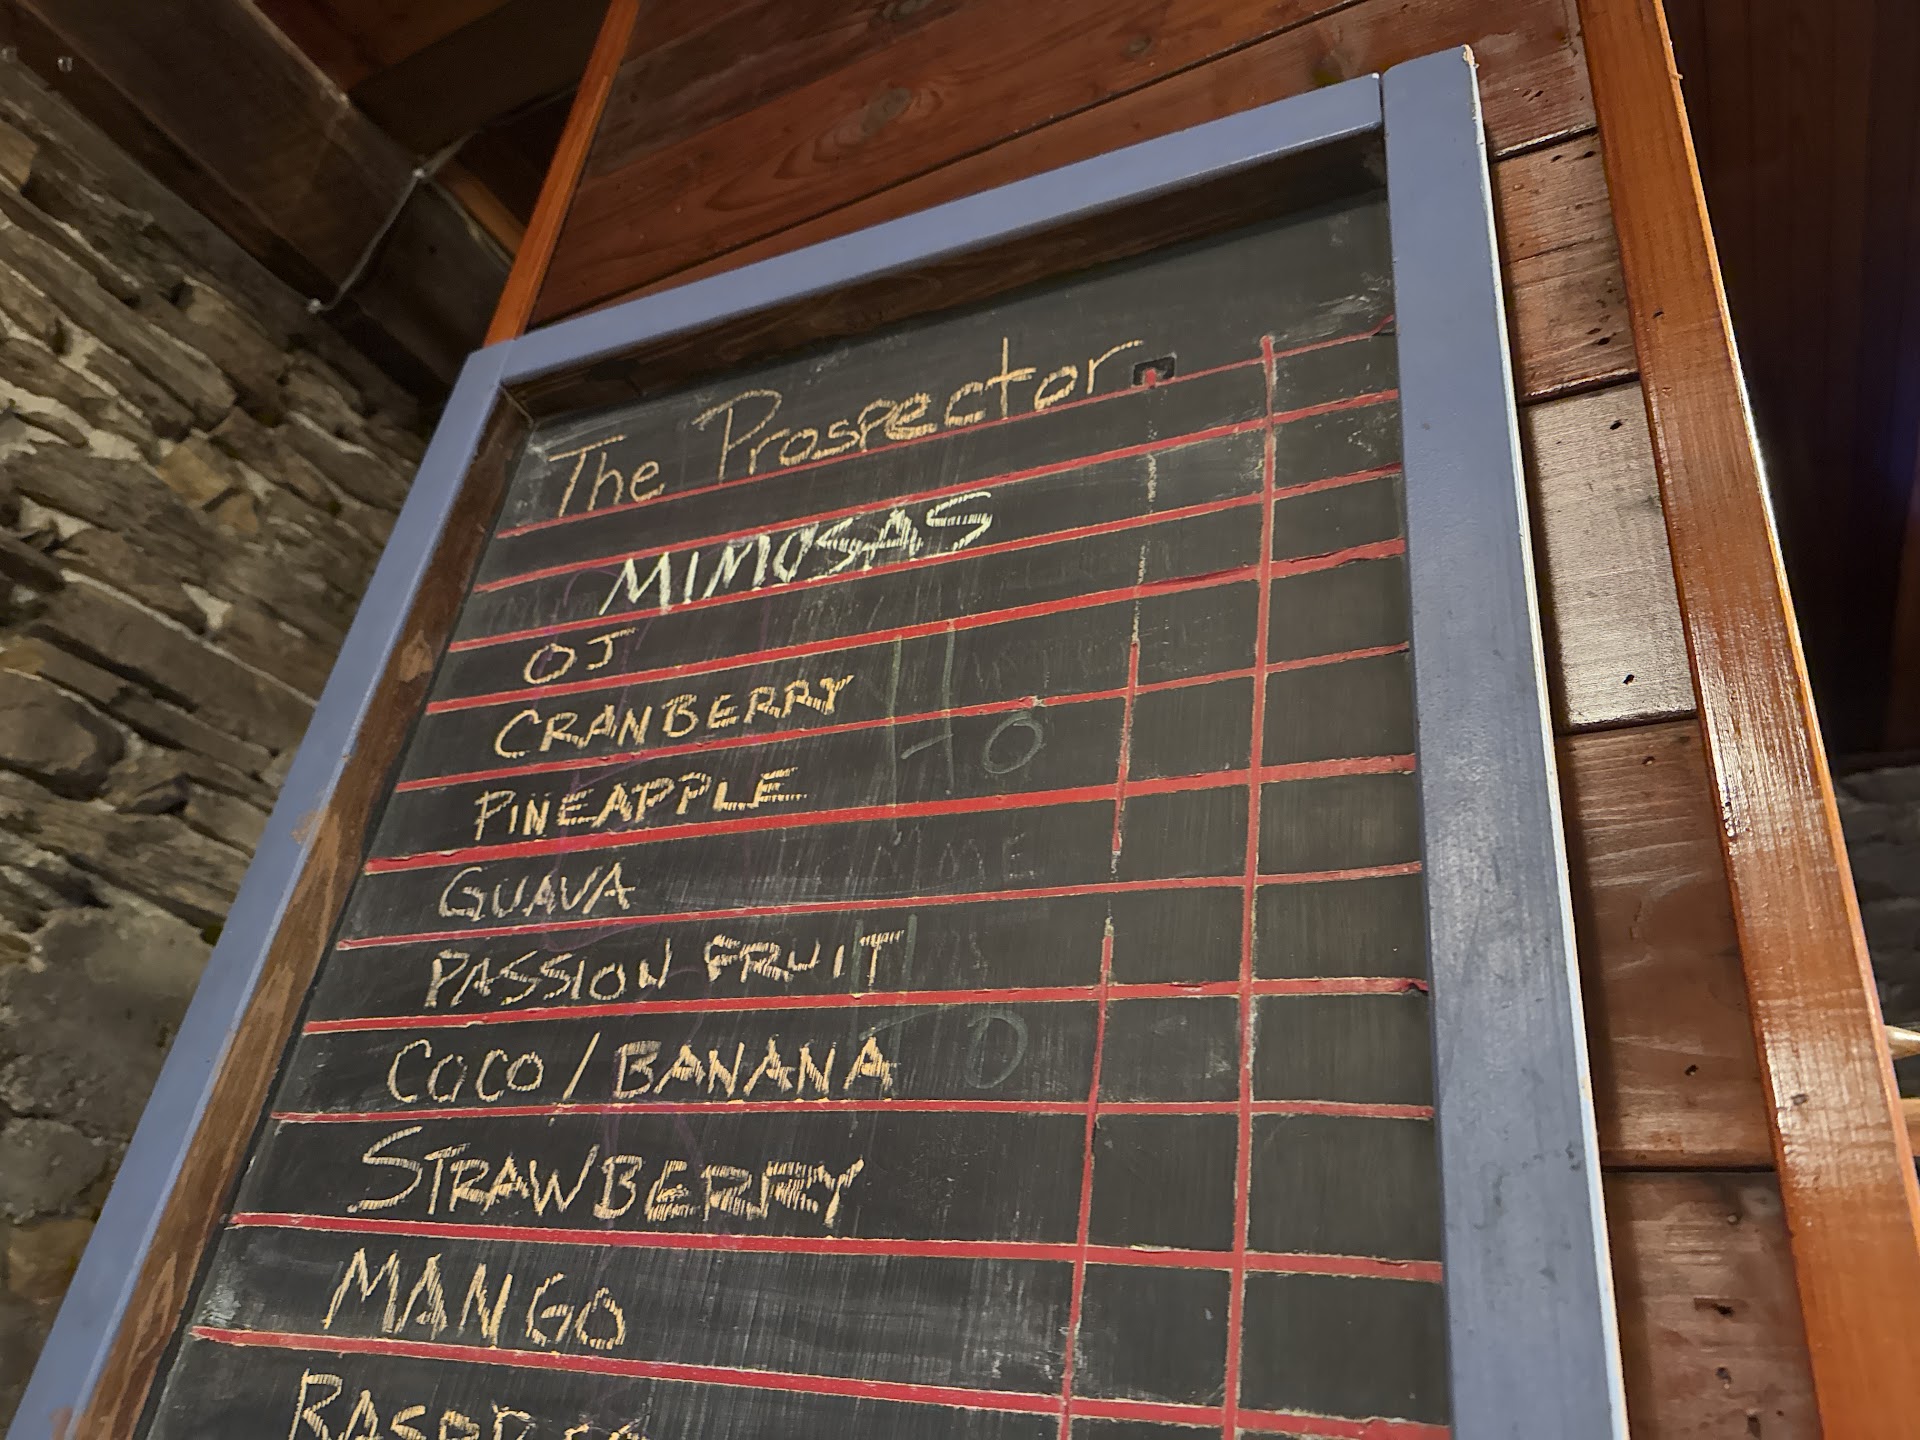 The Prospector
MIMOSAS
OJ
CRANBERRY
PINEAPPLE
GUAVA
PASSION FRUIT
COCO / BANANA
STRAWBERRY
MANGO